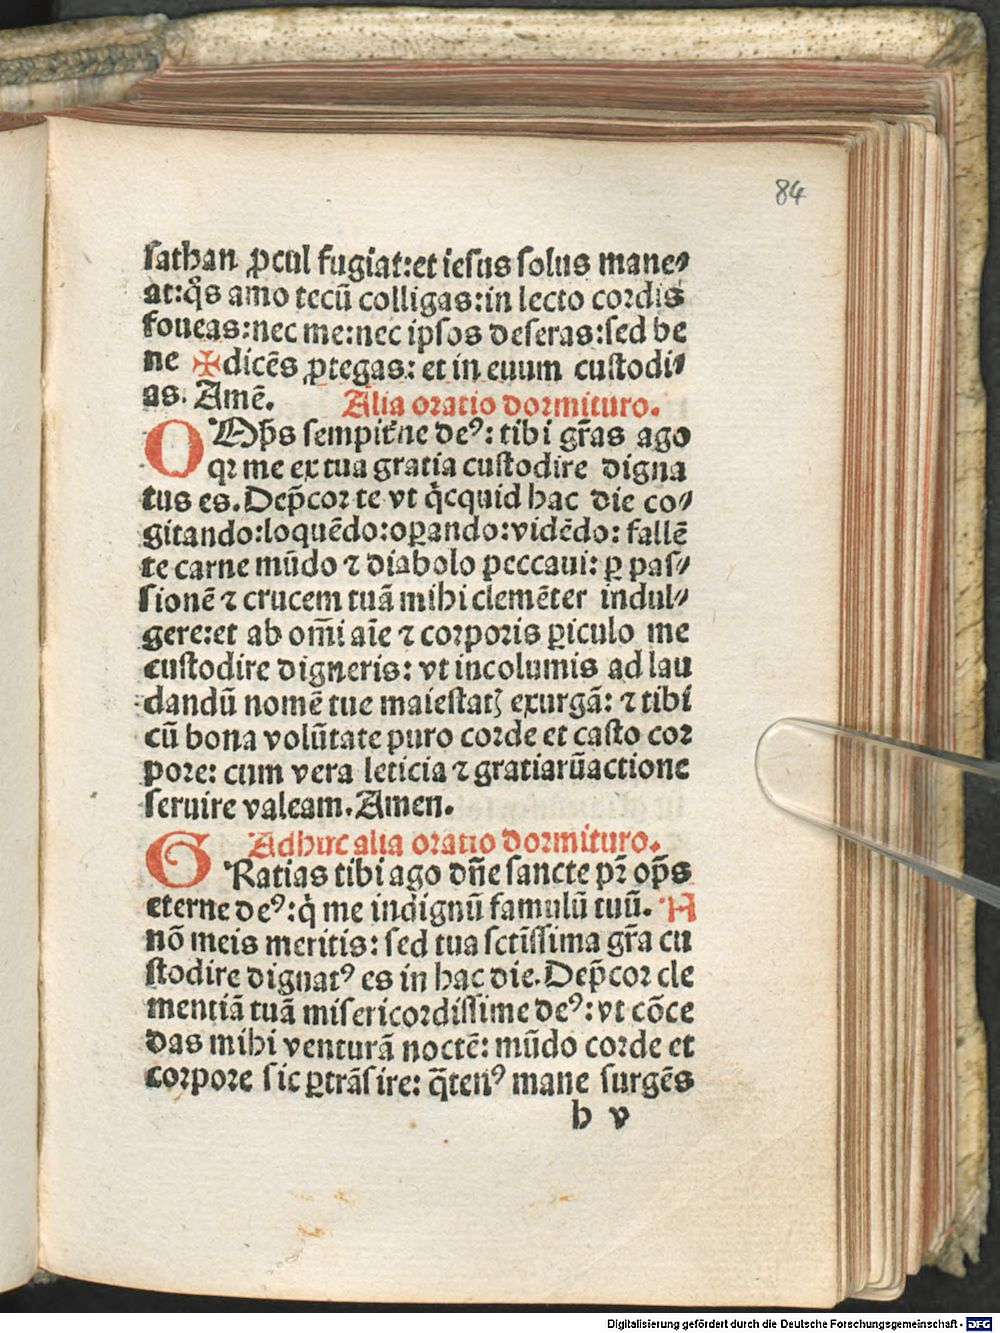 84
sathan ꝓcul fugiat:et iesus solus mane⸗
at:qͦs amo tecū colligas:in lecto cordis
foueas:nec me:nec ipsos deseras:sed be
ne ✠dicēs ꝓtegas: et in euum custodi⸗
as. Amē.
Alia oratio dormituro.
OMp̄s sempit̄ne deꝰ: tibi gr̄as ago
qꝛ me ex tua gratia custodire digna
tus es. Dep̄cor te vt qͥcquid hac die co⸗
gitando:loquēdo:oꝑando:vidēdo: fallē
te carne mūdo ⁊ diabolo peccaui: ꝑ pas⸗
sionē ⁊ crucem tuā mihi clemēter indul⸗
gere:et ab om̄i aīe ⁊ corporis ꝑiculo me
custodire digneris: vt incolumis ad lau
dandū nomē tue maiestatꝫ exurgā: ⁊ tibi
cū bona volūtate puro corde et casto cor
pore: cum vera leticia ⁊ gratiarūactione
seruire valeam. Amen.
Adhuc alia oratio dormituro.
GRatias tibi ago dn̄e sancte pr̄ op̄s
eterne deꝰ:qͥ me indignū famulū tuū. A
nō meis meritis: sed tua sctīssima gr̄a cu
stodire dignatꝰ es in hac die. Dep̄cor cle
mentiā tuā misericordissime deꝰ: vt cōce
das mihi venturā noctē: mūdo corde et
corpore sic ꝑtrāsire: q̄tenꝰ mane surgēs
h v
Digitalisierung gefördert durch die Deutsche Forschungsgemeinschaft - DFG